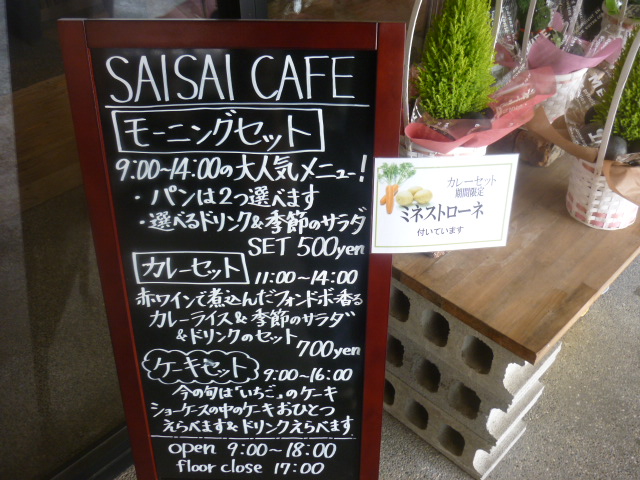 SAISAI CAFE
モーニングセット
9:00~14:00の大人気メニュー!
・パンは2つ選べます
・選べるドリンク&季節のサラダ
SET 500yen
カレーセット
11:00~14:00
赤ワインで煮込んだフォンドボ香る
カレーライス&季節のサラダ
&ドリンクのセット
700yen
ケーキセット 9:00~16:00
今の旬は"いちご"のケーキ
ショーケースの中のケーキおひとつ
えらべます&ドリンクえらべます
open 9:00~18:00
floor close 17:00
カレーセット
期間限定
ミネストローネ
付いています